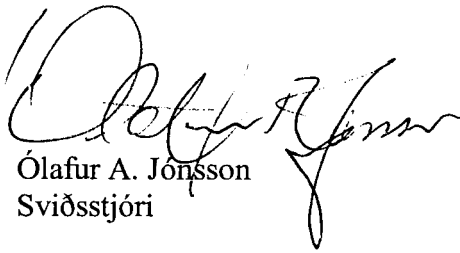 Ólafur A. Jónsson
Ólafur A. Jónsson
Sviðsstjóri